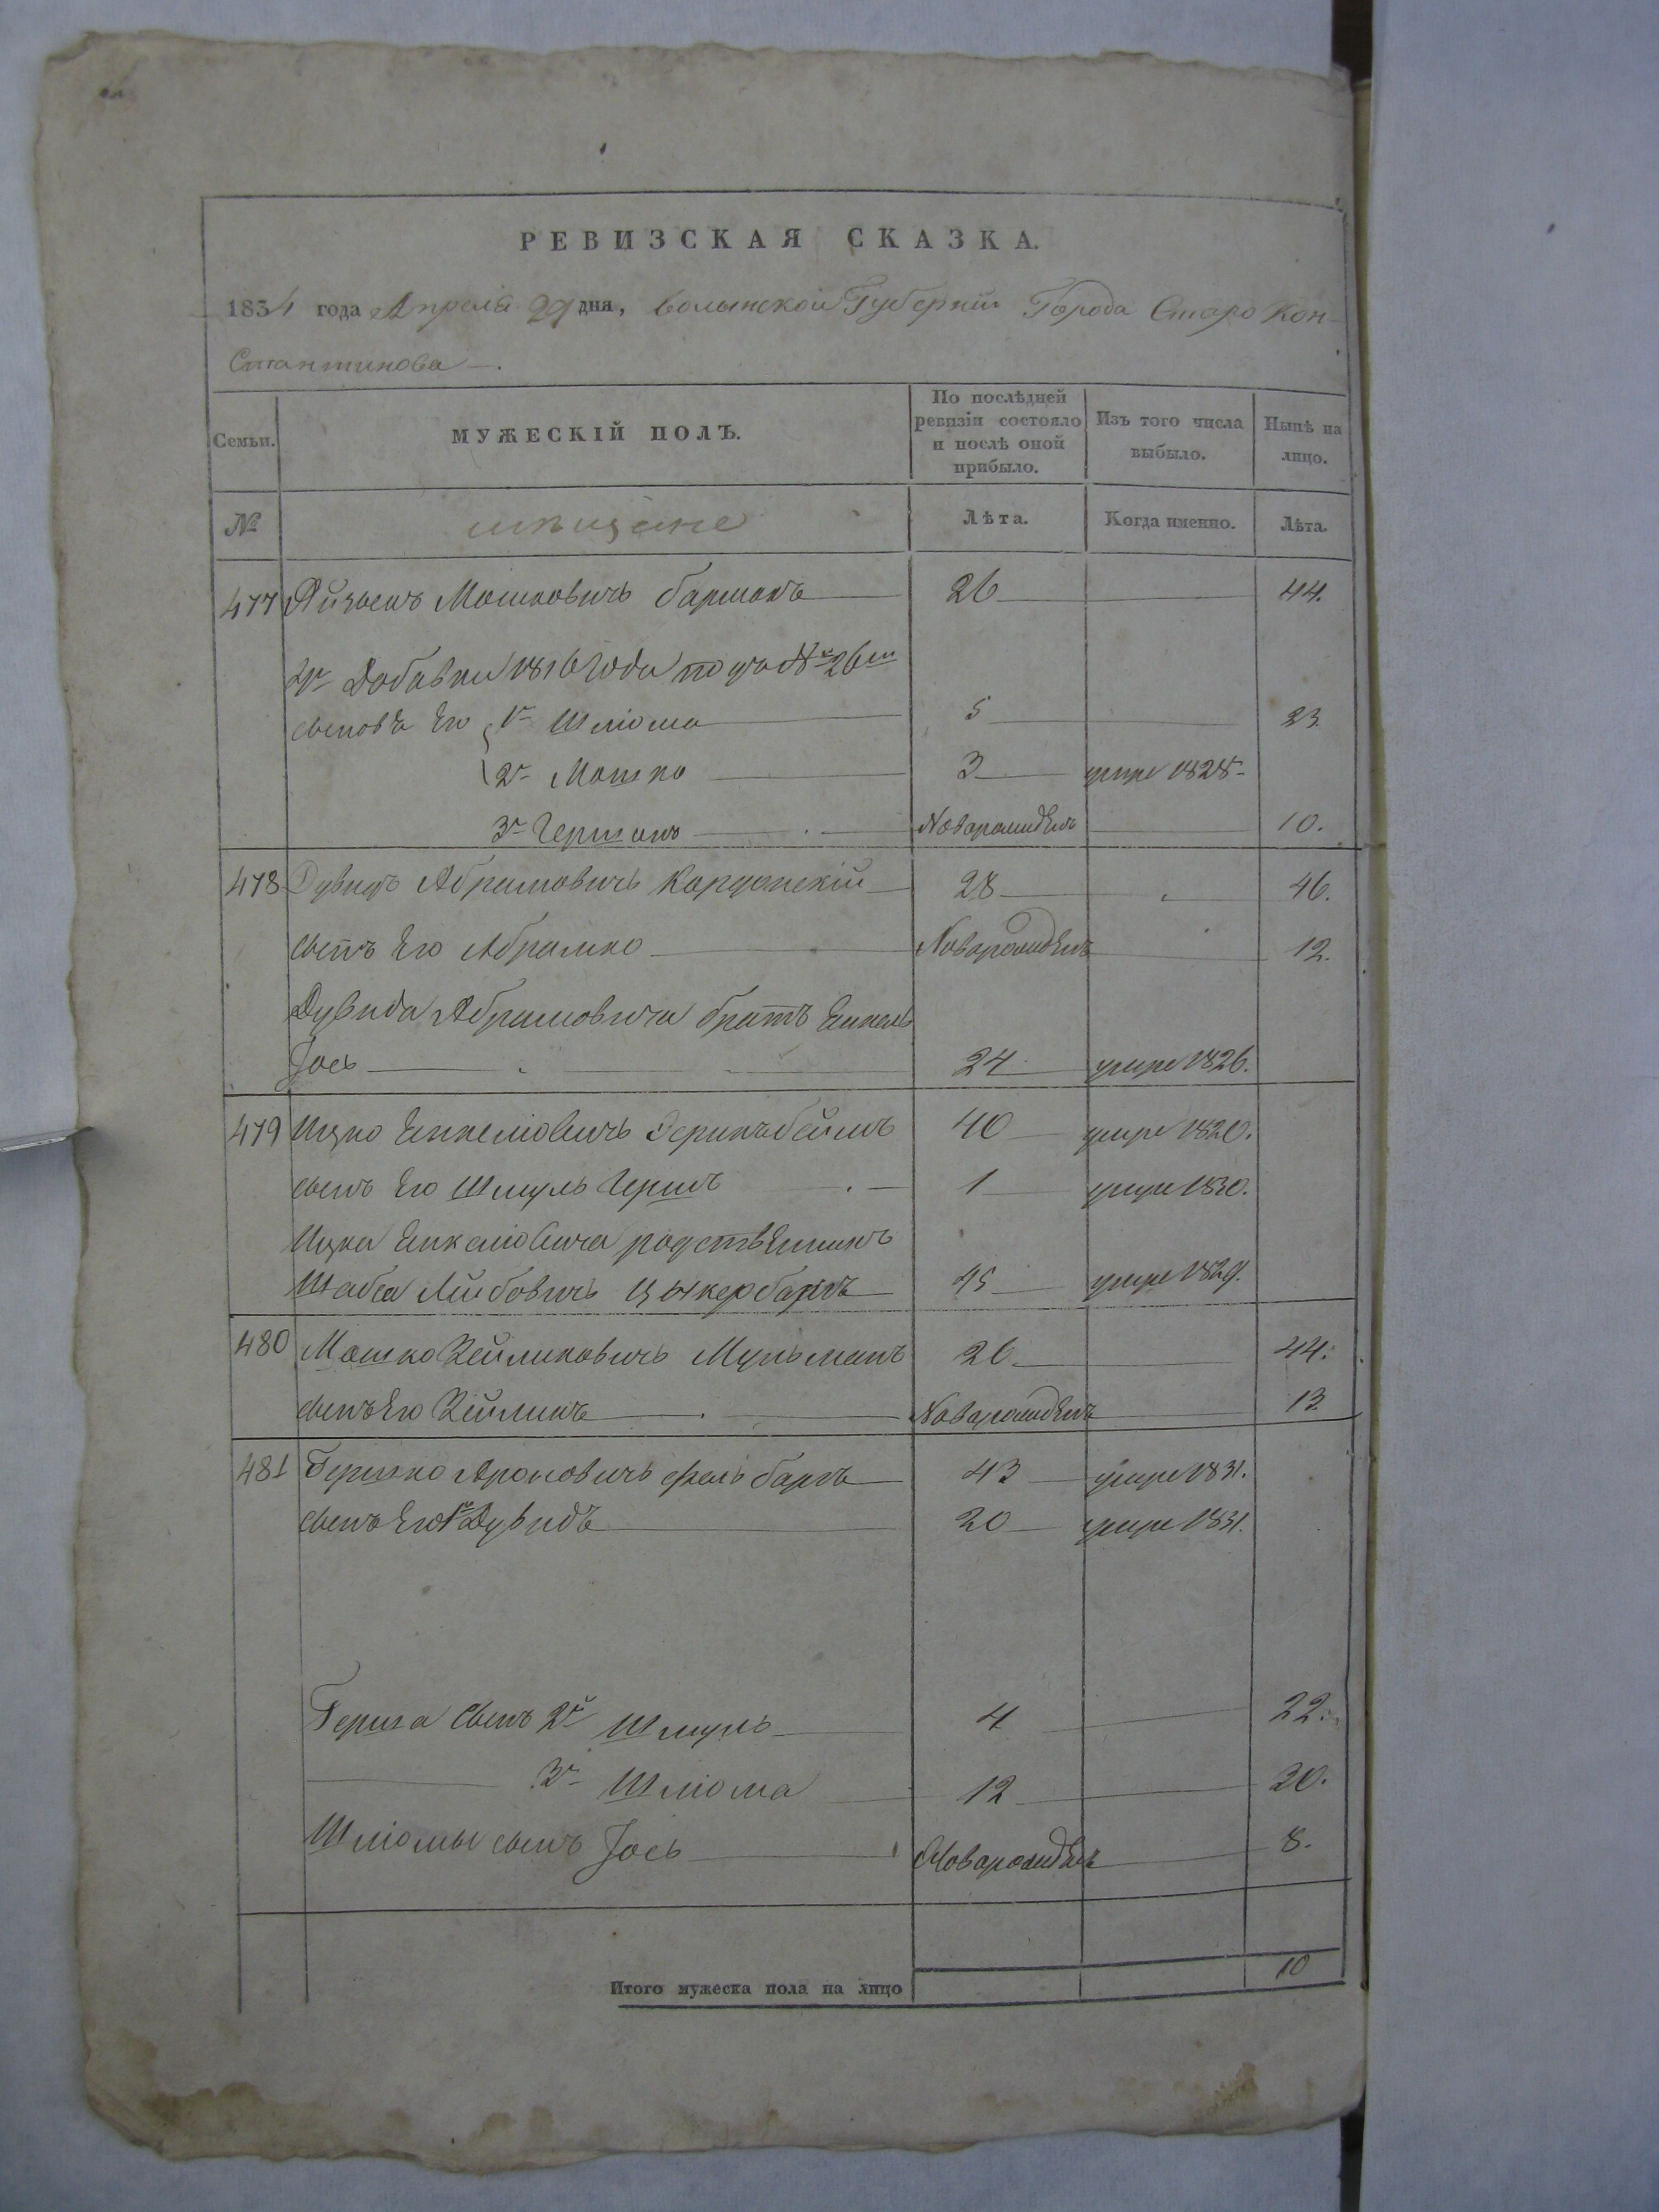 РЕВИЗСКАЯ СКАЗКА.
1834 года Апреля 29 дня, Волынской Губерніи Города Старо Кон-
стантинова —.
Семьи. МУЖЕСКІЙ ПОЛЪ. По послѣдней ревизіи состояло и послѣ оной прибыло. Изъ того числа выбыло. Нынѣ на лицо.
№ мѣщане Лѣта. Когда именно. Лѣта.
477 Айзыкъ Мошковичъ 26 44.
Добавки 1816 года подъ № 26
сыновъя Его 1й Шліома 5 23
2й Мошко 3 умре 1828
3й Гершонъ Новорожденъ 10.
478 Дувидъ Абрамовичъ Кордонскій 28 46.
сынъ Его Абрамко Новорожденъ 12.
Дувида Абрамовича братъ Енкель
Іось 24 умре 1826.
479 Ицко Енкеліовичъ 40 умре 1820.
сынъ Его Шмуль Гершъ 1 умре 1830.
Ицка Енкеліовича родственникъ
Шабса Лейбовичъ Цукербаръ 45 умре 1829.
480 Мошко Зейликовичъ Мульманъ 26 44.
сынъ Его Зейликъ Новорожденъ 13
481 Гершко Ароновичъ Фельбаръ 43 умре 1831.
сынъ Его 1й Дувидъ 20 умре 1831.
Герша сынъ 2й Шмуль 4 22.
3й Шліома 12 30.
Шліомы сынъ Іось Новорожденъ 8.
Итого мужеска пола на лицо 10